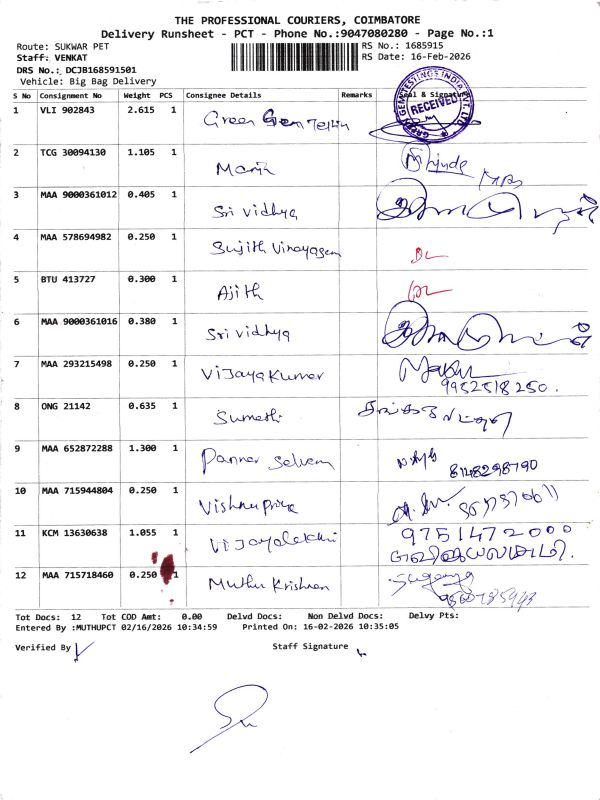 THE PROFESSIONAL COURIERS, COIMBATORE
Delivery Runsheet - PCT - Phone No.:9047080280 - Page No.:1
Route: SUKWAR PET RS No.: 1685915
Staff: VENKAT RS Date: 16-Feb-2026
DRS No.: DCJB168591501
Vehicle: Big Bag Delivery
S No Consignment No Weight PCS Consignee Details Remarks Seal & Signature
GREEN GEM TESTINGS INDIA PVT. LTD.
RECEIVED
1 VLI 902843 2.615 1 Green Gem Testin
2 TCG 30094130 1.105 1
3 MAA 9000361012 0.405 1 Sri vidhya
4 MAA 578694982 0.250 1 Sujith Vinayagam DL
5 BTU 413727 0.300 1 Ajith DL
6 MAA 9000361016 0.380 1 Sri vidhya
7 MAA 293215498 0.250 1 Vijaya Kumar 9952518250.
8 ONG 21142 0.635 1 Sumathi
9 MAA 652872288 1.300 1 Panner Selvam 8148298790
10 MAA 715944804 0.250 1 Vishnu priya
11 KCM 13630638 1.055 1 Vijayalakshmi 9751472000
12 MAA 715718460 0.250 1 Muthu Krishnan
Tot Docs: 12 Tot COD Amt: 0.00 Delvd Docs: Non Delvd Docs: Delvy Pts:
Entered By :MUTHUPCT 02/16/2026 10:34:59 Printed On: 16-02-2026 10:35:05
Verified By Staff Signature